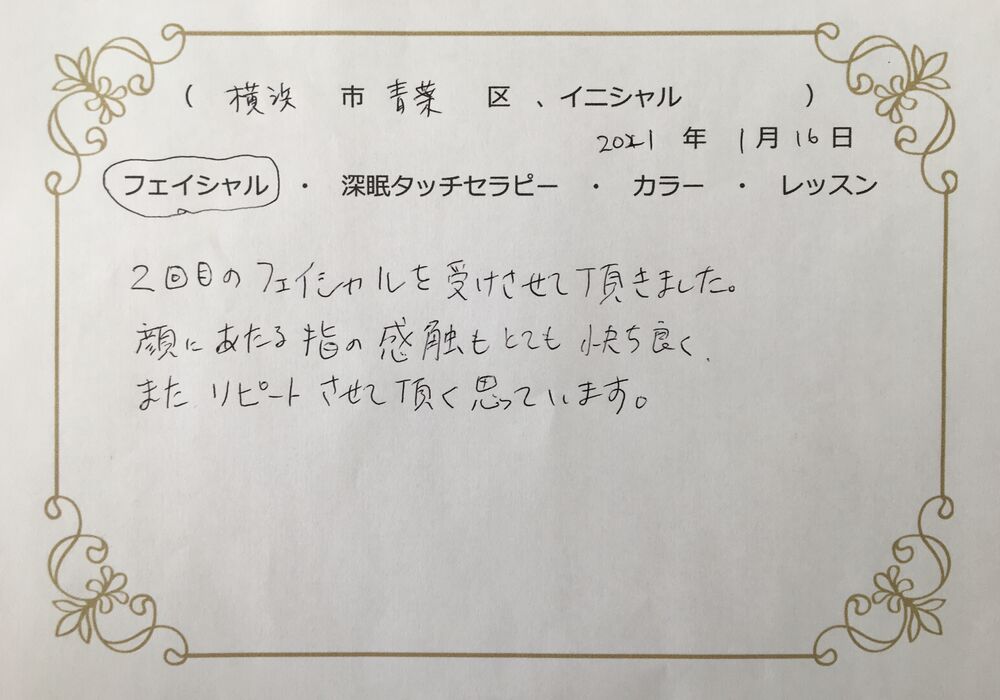 ( 横浜 市 青葉 区 、イニシャル )
2021 年 1 月 16 日
フェイシャル ・ 深眠タッチセラピー ・ カラー ・ レッスン
2回目のフェイシャルを受けさせて頂きました。
顔にあたる指の感触もとても快ち良く、
またリピートさせて頂く思っています。